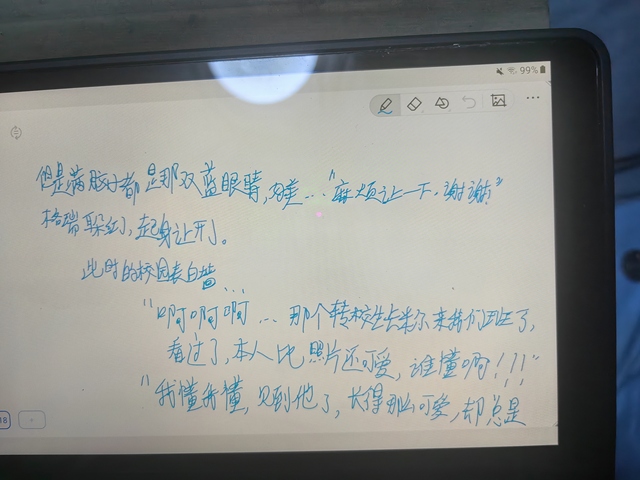 99%
但是满脑子都是那双蓝眼睛,……"麻烦让一下,谢谢"
格瑞躲幻,起身让开了。
此时的校园表白墙……
"啊啊啊……那个转校生长米尔来我们班了,
看过了,本人比照片还可爱,谁懂啊!!!"
"我懂我懂,见到他了,长得那么可爱,却总是
18